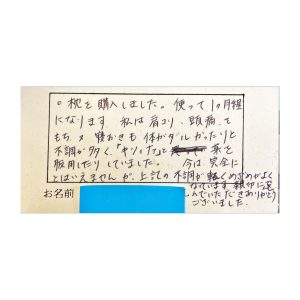 ○枕を購入しました。使って1ヶ月程
になります 私は肩コリ、頭痛って
もち 寝おきも 体がダルかったりと
不調が多く、「キツいナ」と 薬を
服用したりしていました。 今は 完全に
とはいえませんが、上記の不調が軽くめざめがよく
なっています 親切に選
んでいただきありがとう
ございました。
お名前